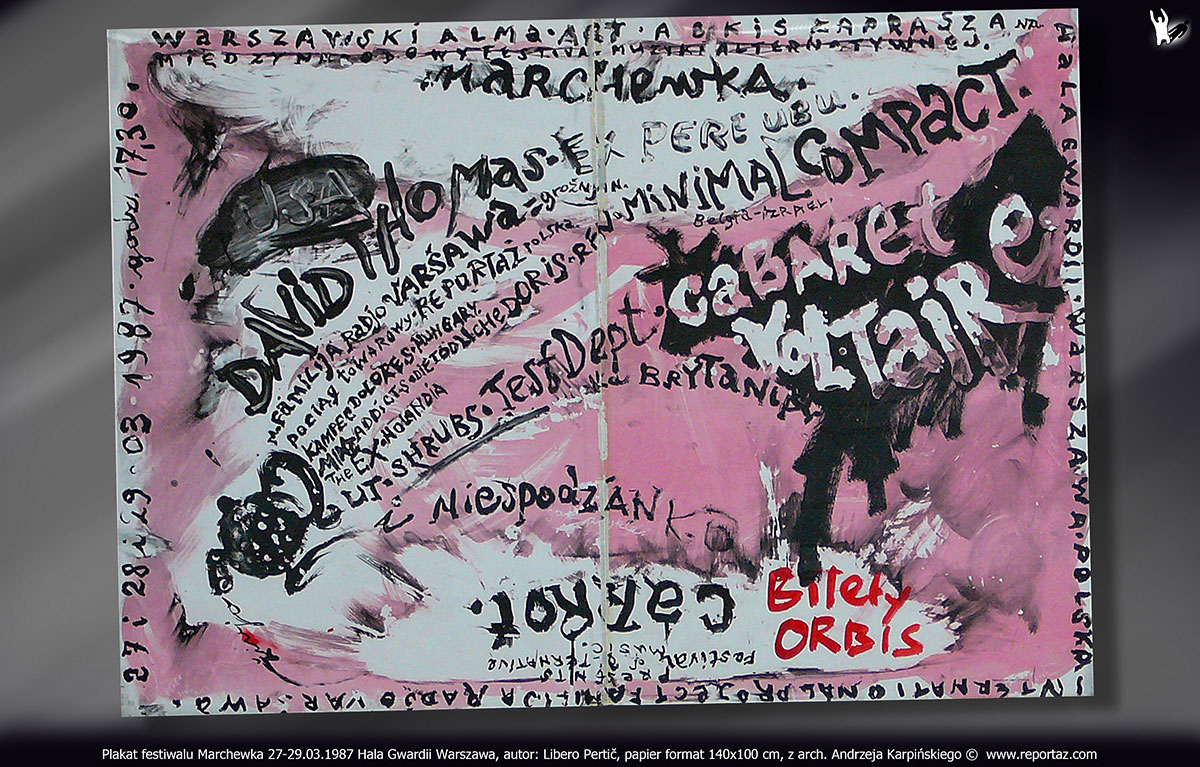 WARSZAWSKI ALMA·ART·ACKIS ZAPRASZA NA
MIĘDZYNARODOWY FESTIVAL MUZIKI ALTERNATYWNEJ.
MARCHEWKA.
EX PERE UBU.
USA
DAVID THOMAS
MINIMAL COMPACT.
Belgia-IZRAEL.
M.FAMILIJA RADIO VARŠAWA
POCIĄG TOWAROWY·REPORTAŻ POLSKA
KAMPEC DOLORES·HUNGARY.
MIMI
ADDICTS
DIE TÖDLICHE DORIS·RFN
THE EX·HOLANDIA
UT·SHRUBS·TEST Dept·CABARET VOLTAIRE
BRYTANIA
i NIESPODZIANKA
27 i 28 i 29·03·1987·godz. 17,30.
HALA GWARDII·WARSZAWA·POLSKA
Bilety
ORBIS
INTERNATIONAL PROJECT FAMILIJA RADJO VARŠAWA.
PRESENTS
Festival of ALTERNATIVE
MUSIC.
CARROT.
Plakat festiwalu Marchewka 27-29.03.1987 Hala Gwardii Warszawa, autor: Libero Pertič, papier format 140x100 cm, z arch. Andrzeja Karpińskiego © www.reportaz.com